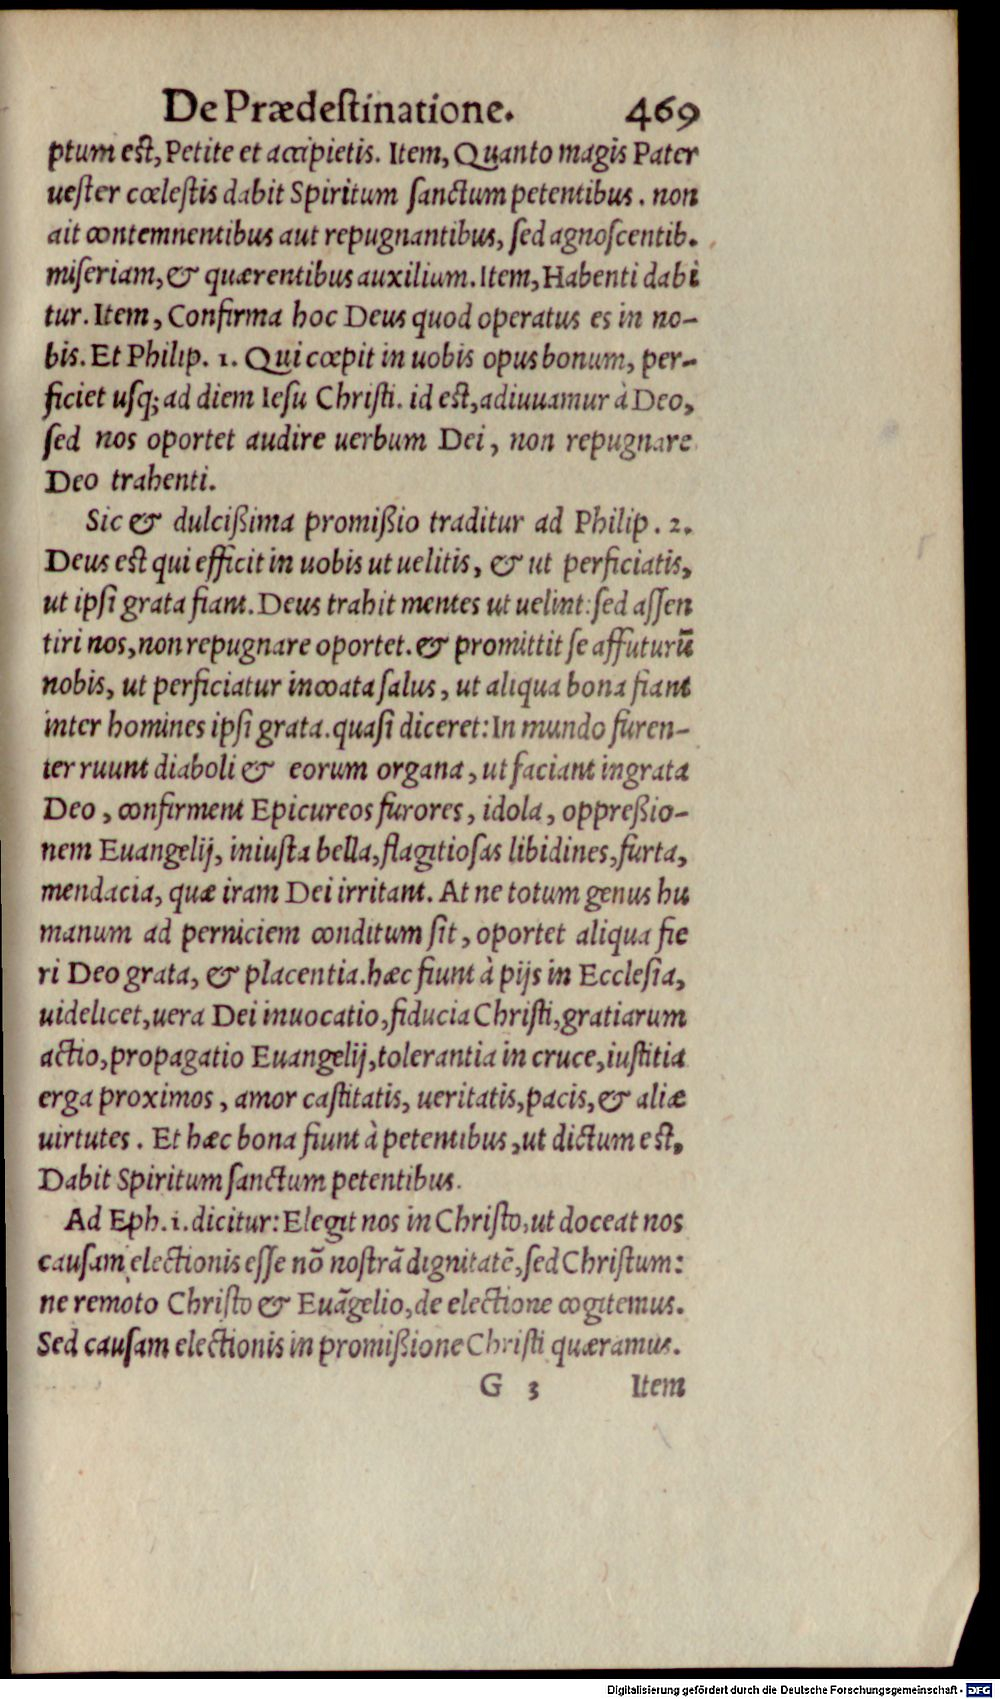 De Prædeſtinatione. 469
ptum eſt, Petite et accipietis. Item, Quanto magis Pater
ueſter cœleſtis dabit Spiritum ſanctum petentibus. non
ait contemnentibus aut repugnantibus, ſed agnoſcentib.
miſeriam, & quærentibus auxilium. Item, Habenti dabi
tur. Item, Confirma hoc Deus quod operatus es in no-
bis. Et Philip. 1. Qui cœpit in uobis opus bonum, per-
ficiet uſq; ad diem Ieſu Chriſti. id eſt, adiuuamur à Deo,
ſed nos oportet audire uerbum Dei, non repugnare
Deo trahenti.
Sic & dulcißima promißio traditur ad Philip. 2.
Deus eſt qui efficit in uobis ut uelitis, & ut perficiatis,
ut ipſi grata fiant. Deus trahit mentes ut uelint: ſed aſſen
tiri nos, non repugnare oportet. & promittit ſe affuturũ
nobis, ut perficiatur incoata ſalus, ut aliqua bona fiant
inter homines ipſi grata. quaſi diceret: In mundo furen-
ter ruunt diaboli & eorum organa, ut faciant ingrata
Deo, confirment Epicureos furores, idola, oppreßio-
nem Euangelij, iniuſta bella, flagitioſas libidines, furta,
mendacia, quæ iram Dei irritant. At ne totum genus hu
manum ad perniciem conditum ſit, oportet aliqua fie
ri Deo grata, & placentia. hæc fiunt à pijs in Eccleſia,
uidelicet, uera Dei inuocatio, fiducia Chriſti, gratiarum
actio, propagatio Euangelij, tolerantia in cruce, iuſtitia
erga proximos, amor caſtitatis, ueritatis, pacis, & aliæ
uirtutes. Et hæc bona fiunt à petentibus, ut dictum eſt,
Dabit Spiritum ſanctum petentibus.
Ad Eph. 1. dicitur: Elegit nos in Chriſto, ut doceat nos
cauſam electionis eſſe nõ noſtrã dignitatẽ, ſed Chriſtum:
ne remoto Chriſto & Euãgelio, de electione cogitemus.
Sed cauſam electionis in promißione Chriſti quæramus.
G 3 Item
Digitalisierung gefördert durch die Deutsche Forschungsgemeinschaft - DFG